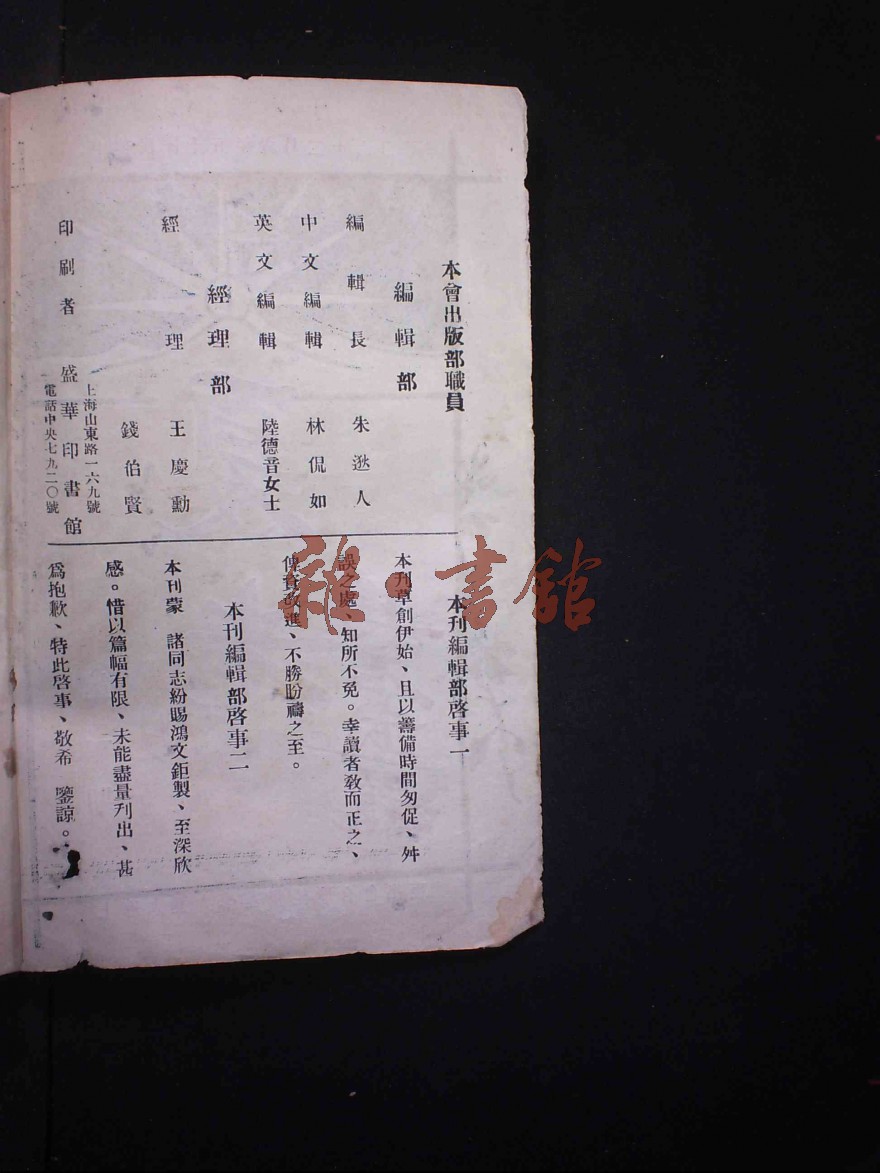 本會出版部職員
編輯部
編輯長 朱遜人
中文編輯 林侃如
英文編輯 陸德音女士
經理部
經理 王慶勳
錢伯賢
印刷者 盛華印書館
上海山東路一六九號
電話中央七九二〇號
本刊編輯部啓事一
本刊草創伊始、且以籌備時間匆促、舛
誤之處、知所不免。幸讀者敎而正之、
俾資改進、不勝盼禱之至。
本刊編輯部啓事二
本刊蒙 諸同志紛賜鴻文鉅製、至深欣
感。惜以篇幅有限、未能盡量刋出、甚
爲抱歉、特此啓事、敬希 鑒諒。
雜·書館